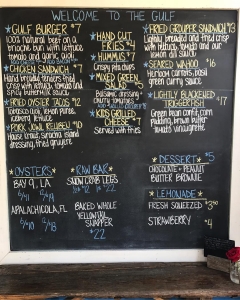 WELCOME TO THE GULF
*GULF BURGER* $7
100% natural beef on a
brioche bun with lettuce
tomato and garlic aioli
*CHICKEN SANDWICH*
Hand breaded tenders fried
crisp with lettuce tomato and
spicy buttermilk sauce
*FRIED OYSTER TACOS* $12
lemon cucumber
iceberg lettuce
*PORK JOWL REUBEN* $10
House kraut, sriracha island
dressing, fried gruyere
*HAND CUT
FRIES* $4
*HUMMUS* $7
Crisp vegetables
*MIXED GREEN
SALAD*
Balsamic dressing
cherry tomatoes
*KIDS GRILLED
CHEESE*
Served with fries
*FRIED GROUPER SANDWICH* $13
Lightly breaded and fried crisp
with lettuce tomato and our
lemon dill sauce
*SEARED WAHOO* $16
Heirloom carrots, basil
green curry sauce
*LIGHTLY BLACKENED
TRIGGERFISH* $17
Green bean confit, corn
pudding, brown butter
tomato vinaigrette
*OYSTERS*
BAY 9, LA
APALACHICOLA, FL
*RAW BAR*
SNOW CRAB LEGS
BAKED WHOLE
YELLOWTAIL
SNAPPER
$22
*DESSERT* $5
CHOCOLATE + PEANUT
BUTTER BROWNIE
*LEMONADE*
FRESH SQUEEZED
STRAWBERRY $4